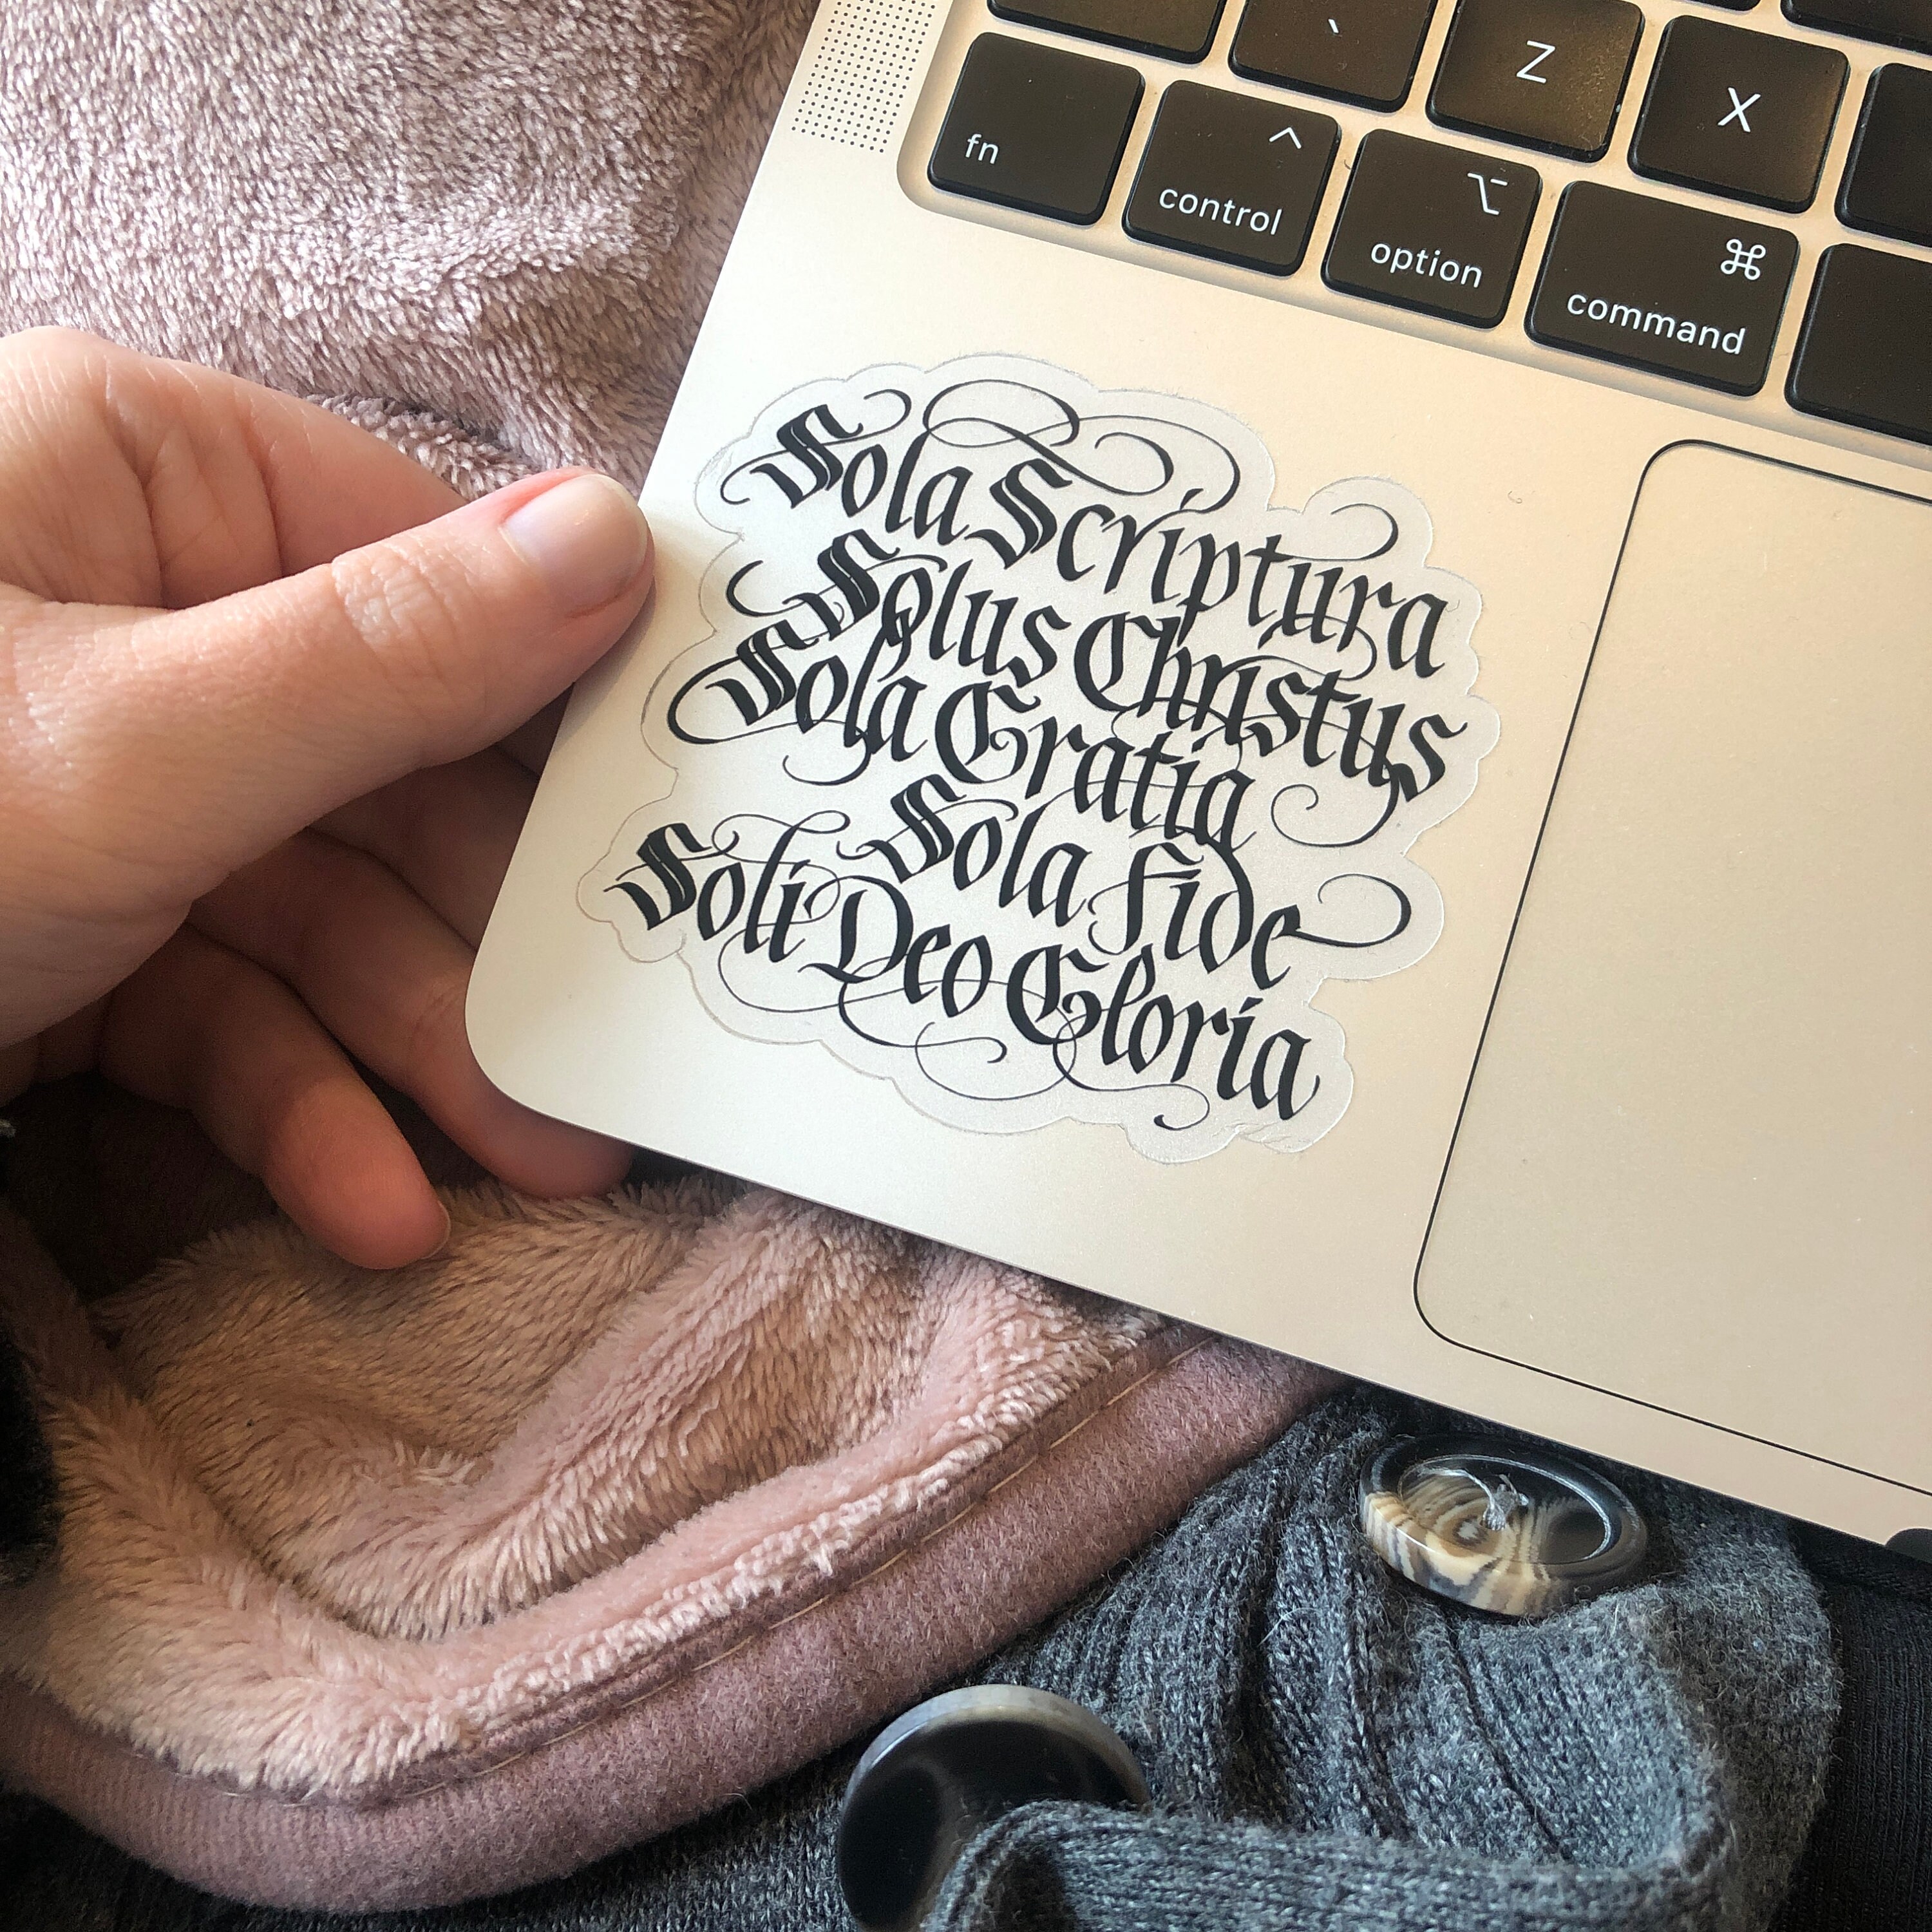 `
Z
X
fn
^
control
⌥
option
⌘
command
Sola Scriptura
Solus Christus
Sola Gratia
Sola Fide
Soli Deo Gloria